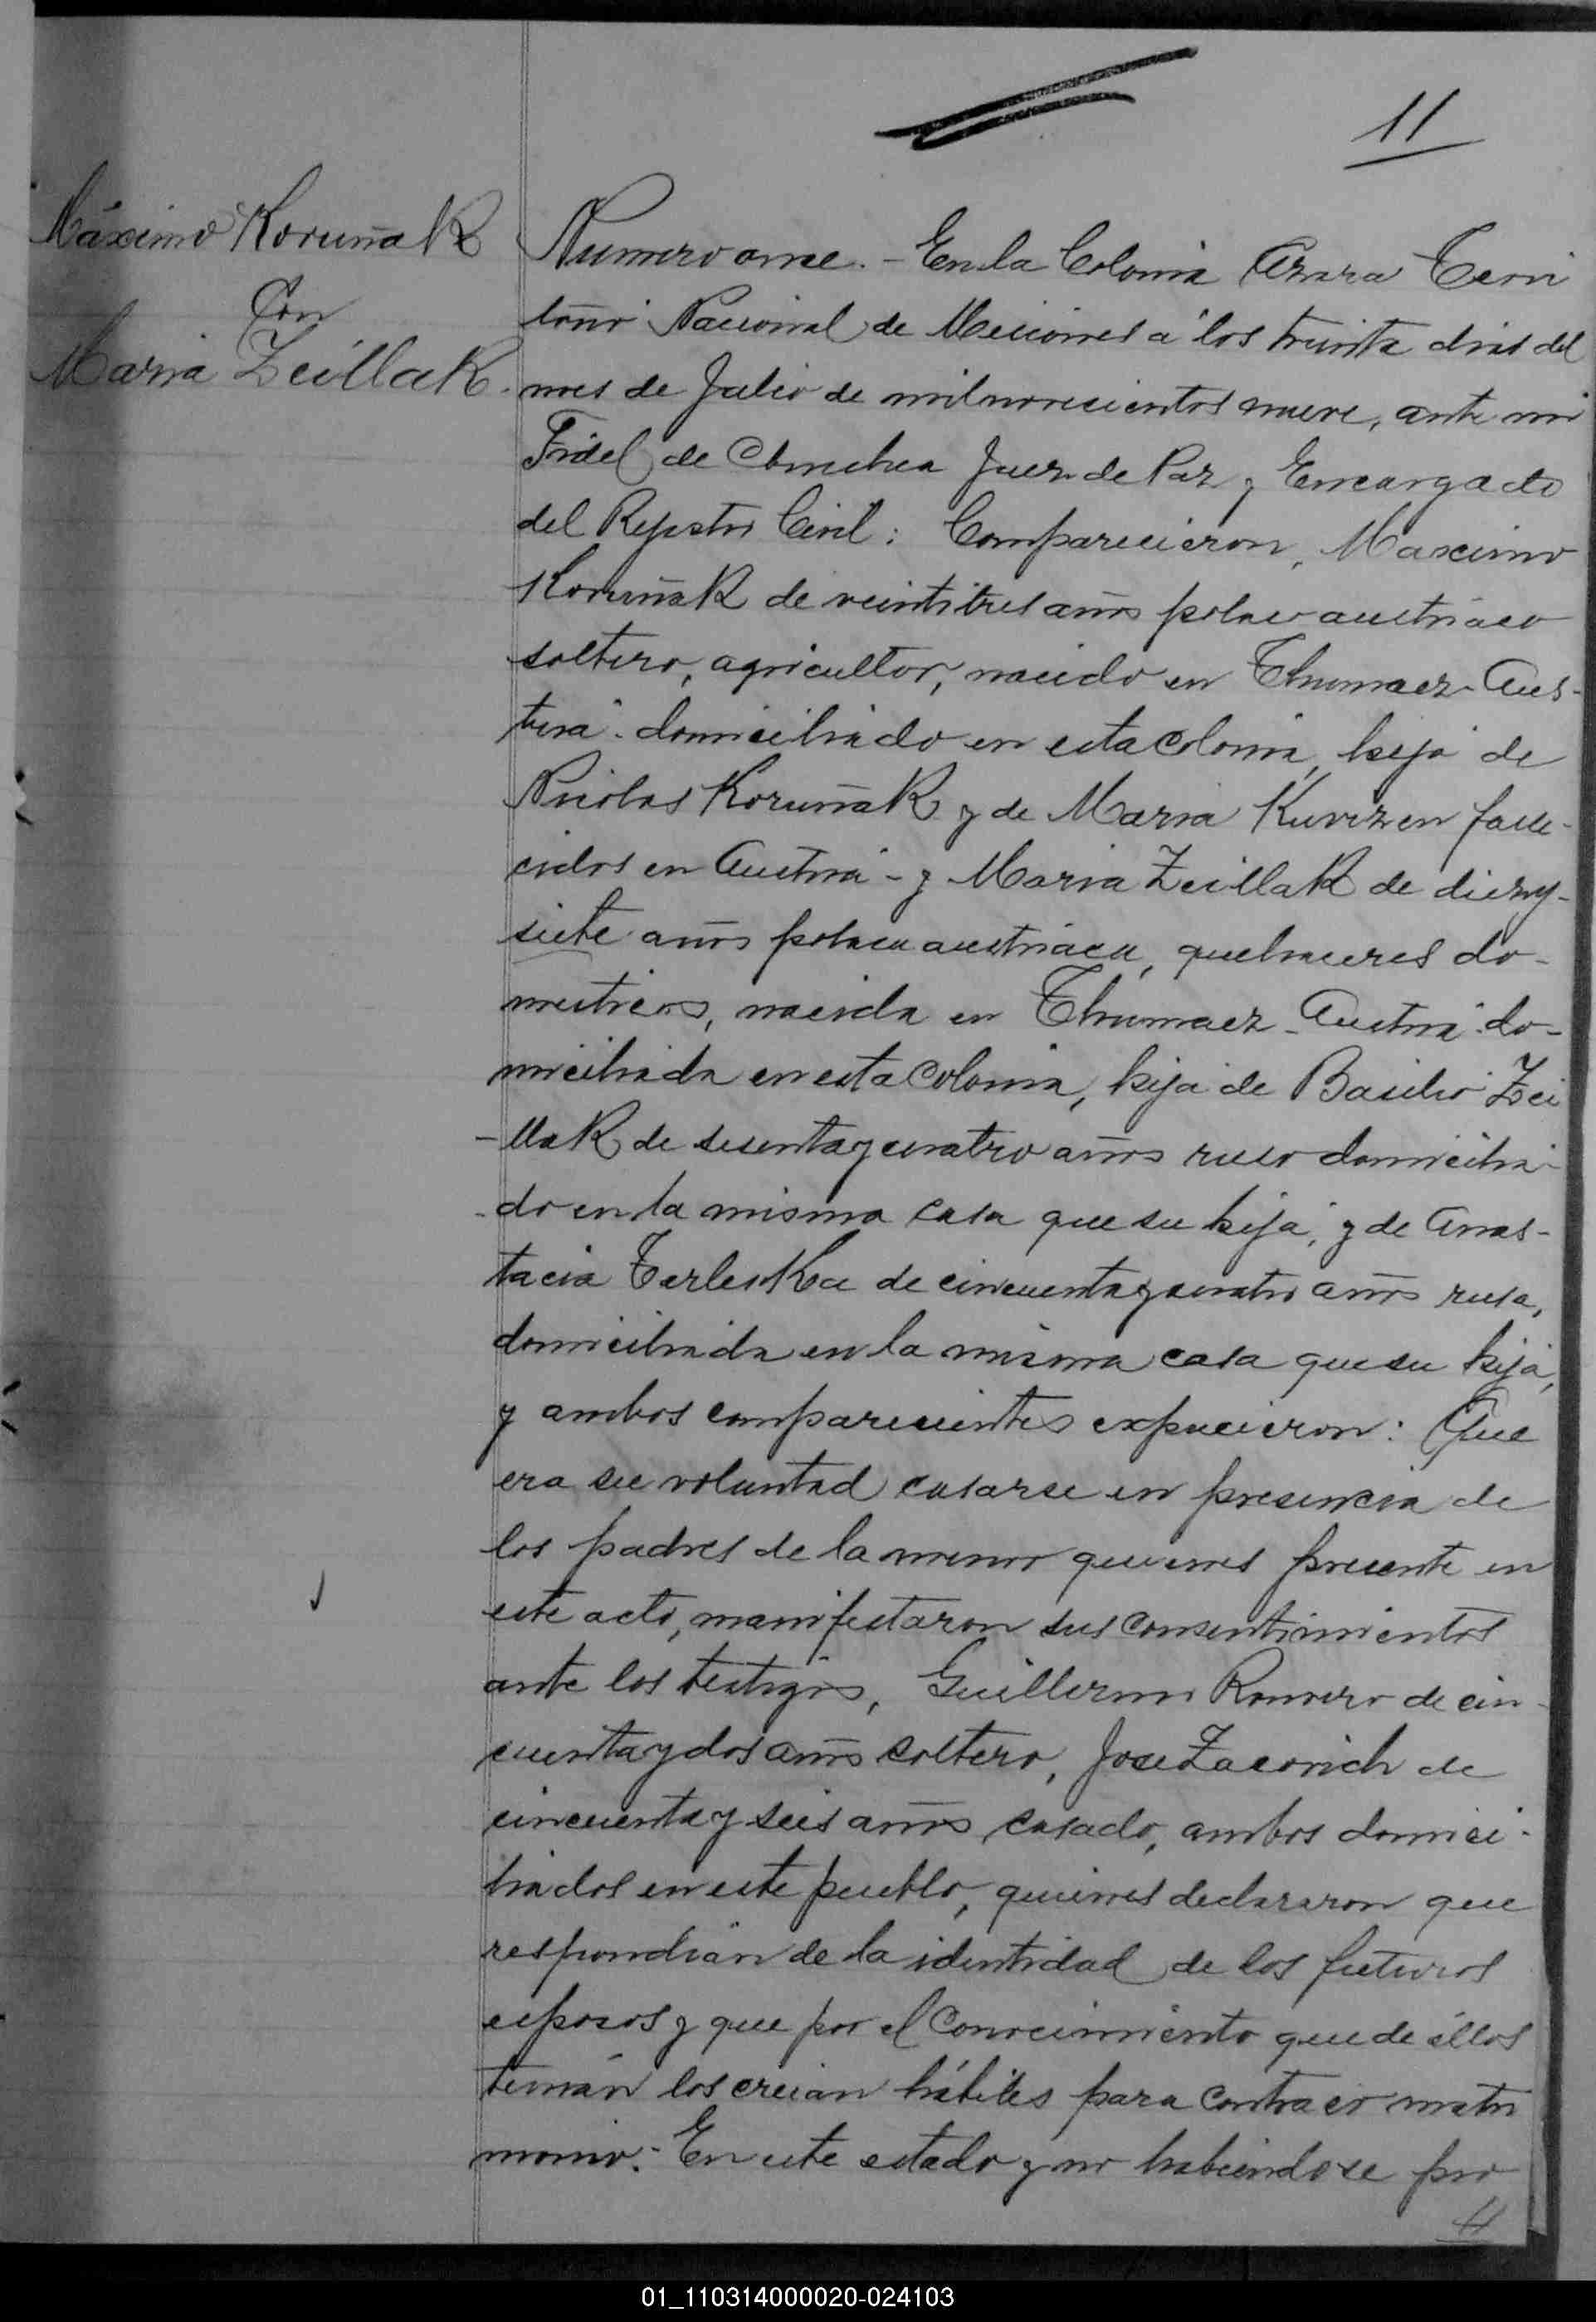 11
Máximo Koruñak
Con
Maria Zeillak.
Numero once. - En la Colonia Azara Terri
torio Nacional de Misiones a los treinta dias del
mes de Julio de mil novecientos nueve, ante mi
Fidel de Juez de Paz y Encargado
del Registro Civil: Comparecieron, Maximo
Koruñak de veintitres años polaco austriaco
soltero, agricultor, nacido en Thumaez - Aus-
tria - domiciliado en esta Colonia, hijo de
Nicolas Koruñak y de Maria falle-
cidos en Austria - y Maria Zeillak de diez y
siete años polaca austriaca, quehaceres do-
mesticos, nacida en Thumaez - Austria - do-
miciliada en esta Colonia, hija de Basilio Zei
-llak de sesenta y cuatro años ruso domicilia-
-do en la misma casa que su hija, y de Anas-
tacia Terleska de cincuenta y cuatro años rusa,
domiciliada en la misma casa que su hija,
y ambos comparecientes expusieron: Que
era su voluntad casarse en presencia de
los padres de la menor quienes presente en
este acto, manifestaron sus consentimientos
ante los testigos, Guillermo Romero de cin-
cuenta y dos años soltero, Jose Zacovich de
cincuenta y seis años casado, ambos domici-
liados en este pueblo, quienes declararon que
respondian de la identidad de los futuros
esposos y que por el conocimiento que de éllos
tenian los creian hábiles para contraer matri
monio. - En este estado y no habiendose pro
11
01_110314000020-024103